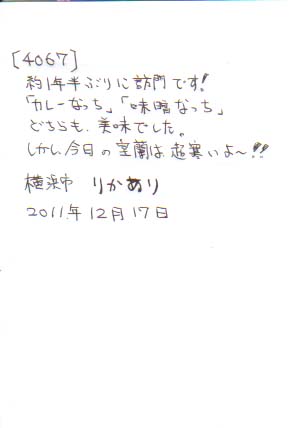 [4067]
約1年半ぶりに訪門です!
「カレーなっち」「味噌なっち」
どちらも、美味でした。
しかし、今日の室蘭は超寒いよ〜!!
横浜市 りかあり
2011年12月17日